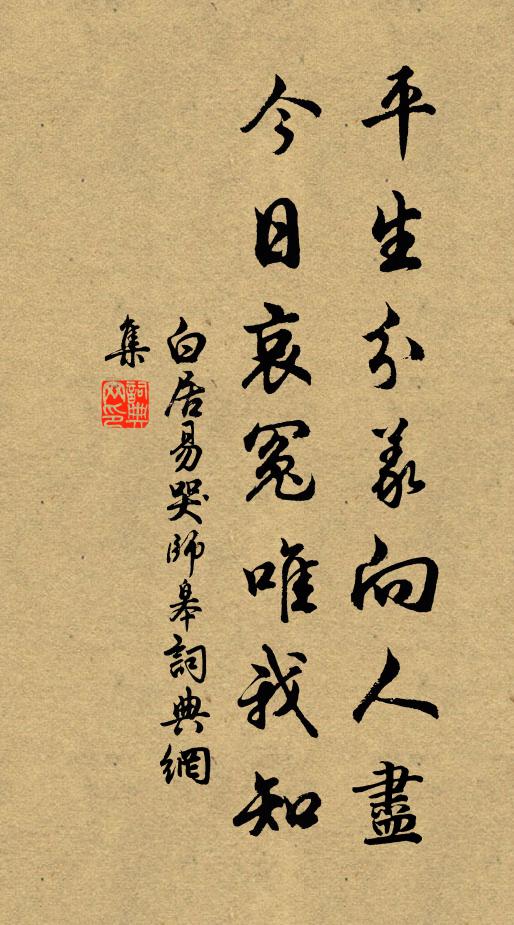 平生分義向人盡
今日哀冤唯我知
白居易哭師皋詞典網
集
詞典
网印